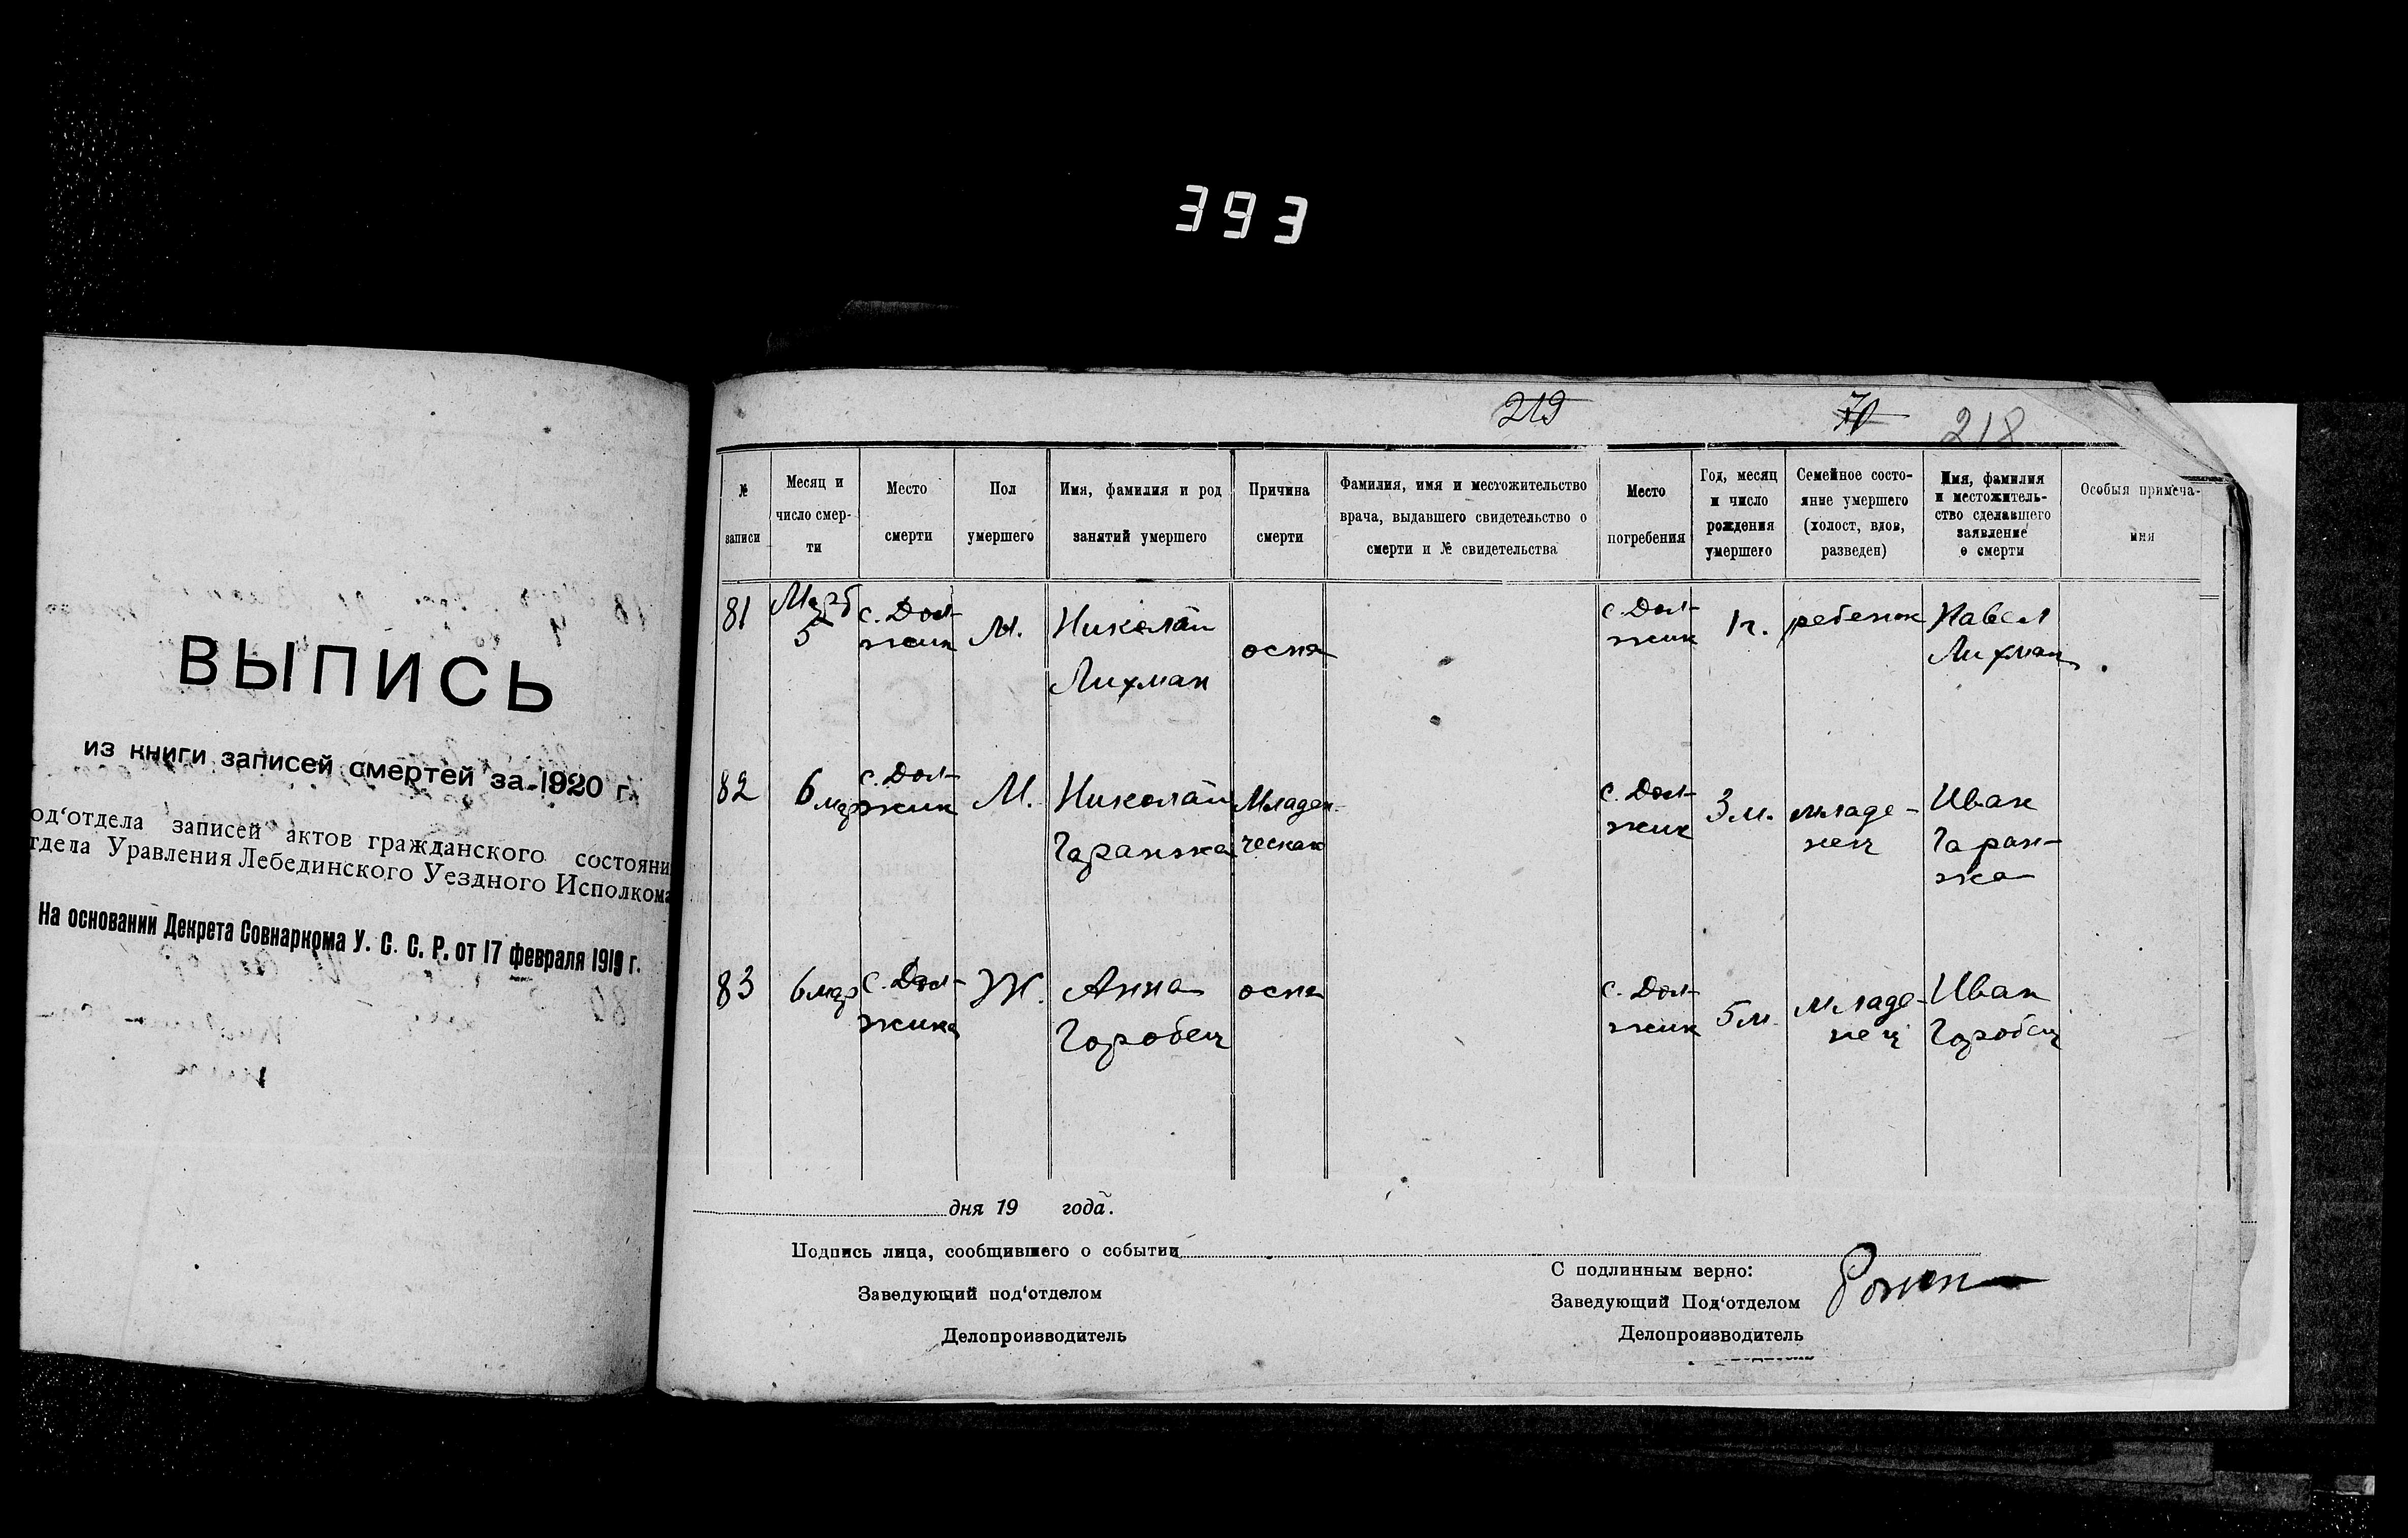 393
ВЫПИСЬ
из книги записей смертей за 1920 г.
од‘отдела записей актов гражданского состояни
тдела Уравления Лебединского Уездного Исполкома
На основании Декрета Совнаркома У. С. С. Р. от 17 февраля 1919 г.
219 218
№ записи
Месяц и число смер-ти
Место смерти
Пол умершего
Имя, фамилия и род занятий умершего
Причина смерти
Фамилия, имя и местожительство врача, выдавшего свидетельство о смерти и № свидетельства
Место погребения
Год, месяц и число рождения умершего
Семейное состо-яние умершего (холост, вдов, разведен)
Имя, фамилия и местожитель-ство сделавшего заявление о смерти
Особыя примеча-ния
81 5 с. Дол-жик М. Николай Лихман оспа с. Дол-жик 1 г. ребенок Павел Лихман
82 6 мар с. Дол-жик М. Николай Гаранжа Младен-ческая с. Дол-жик 3 м. младе-нец Иван Гаран-жа
83 6 мар с. Дол-жика Ж. Анна Горобец оспа с. Дол-жик 5 м. младе-нец Иван Горобец
дня 19 года.
Подпись лица, сообщившего о событии
Заведующий под‘отделом
Делопроизводитель
С подлинным верно:
Заведующий Под‘отделом
Делопроизводитель